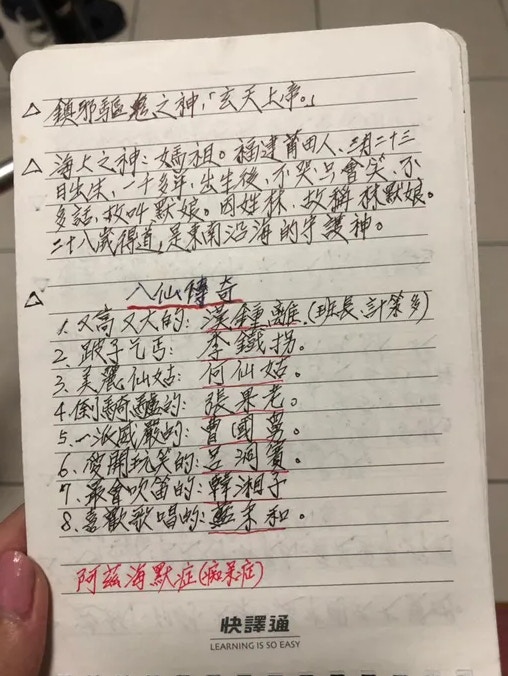 △ 鎮邪驅魁之神,「玄天上帝。」
△ 海上之神:媽祖。福建莆田人、三月二十三
日出生,一千多年,出生後,不哭只會笑、不
多話,故叫默娘。因姓林,故稱林默娘。
二十八歲得道,是東南沿海的守護神。
△ 八仙傳奇
1.又高又大的:漢鍾離.(班長、計策多)
2.跛子乞丐:李鐵拐。
3.美麗仙姑:何仙姑。
4.倒騎驢的:張果老。
5.一派威嚴的:曹國舅。
6.愛開玩笑的:呂洞賓。
7.最會吹笛的:韓湘子
8.喜歡歌唱的:藍采和。
阿茲海默症(痴呆症)
快譯通
LEARNING IS SO EASY